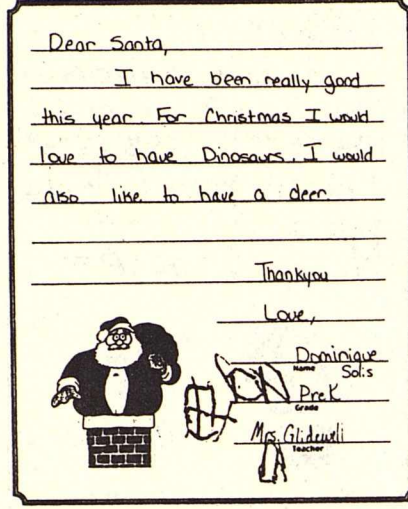 Dear Santa,
I have been really good
this year. For Christmas I would
love to have Dinosaurs. I would
also like to have a deer.
Thankyou
Love,
Dominique
Name Solis
PreK
Grade
Mrs. Glidewell
Teacher